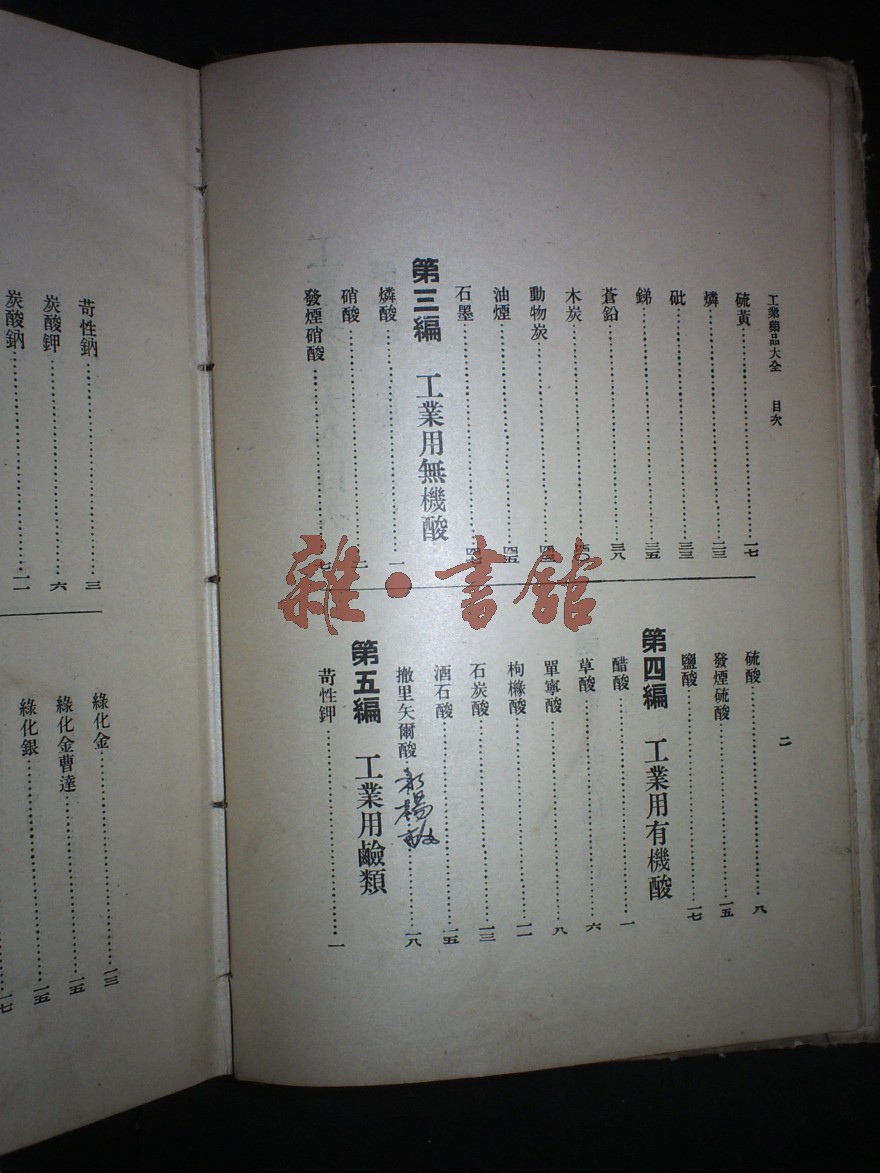 工業藥品大全 目次
二
硫黃……一七
燐……二三
砒……三三
銻……三五
蒼鉛……三八
木炭……四〇
動物炭……
油煙……四五
石墨……
第三編 工業用無機酸
燐酸……一
硝酸……二
發煙硝酸……七
硫酸……八
發煙硫酸……一五
鹽酸……一七
第四編 工業用有機酸
醋酸……一
草酸……六
單寧酸……八
枸櫞酸……一一
石炭酸……一三
酒石酸……一五
撤里矢爾酸……一八
第五編 工業用鹼類
苛性鉀……一
苛性鈉……三
炭酸鉀……六
炭酸鈉……一一
綠化金……一三
綠化金曹達……一五
綠化銀……一五
一七
雜·書館